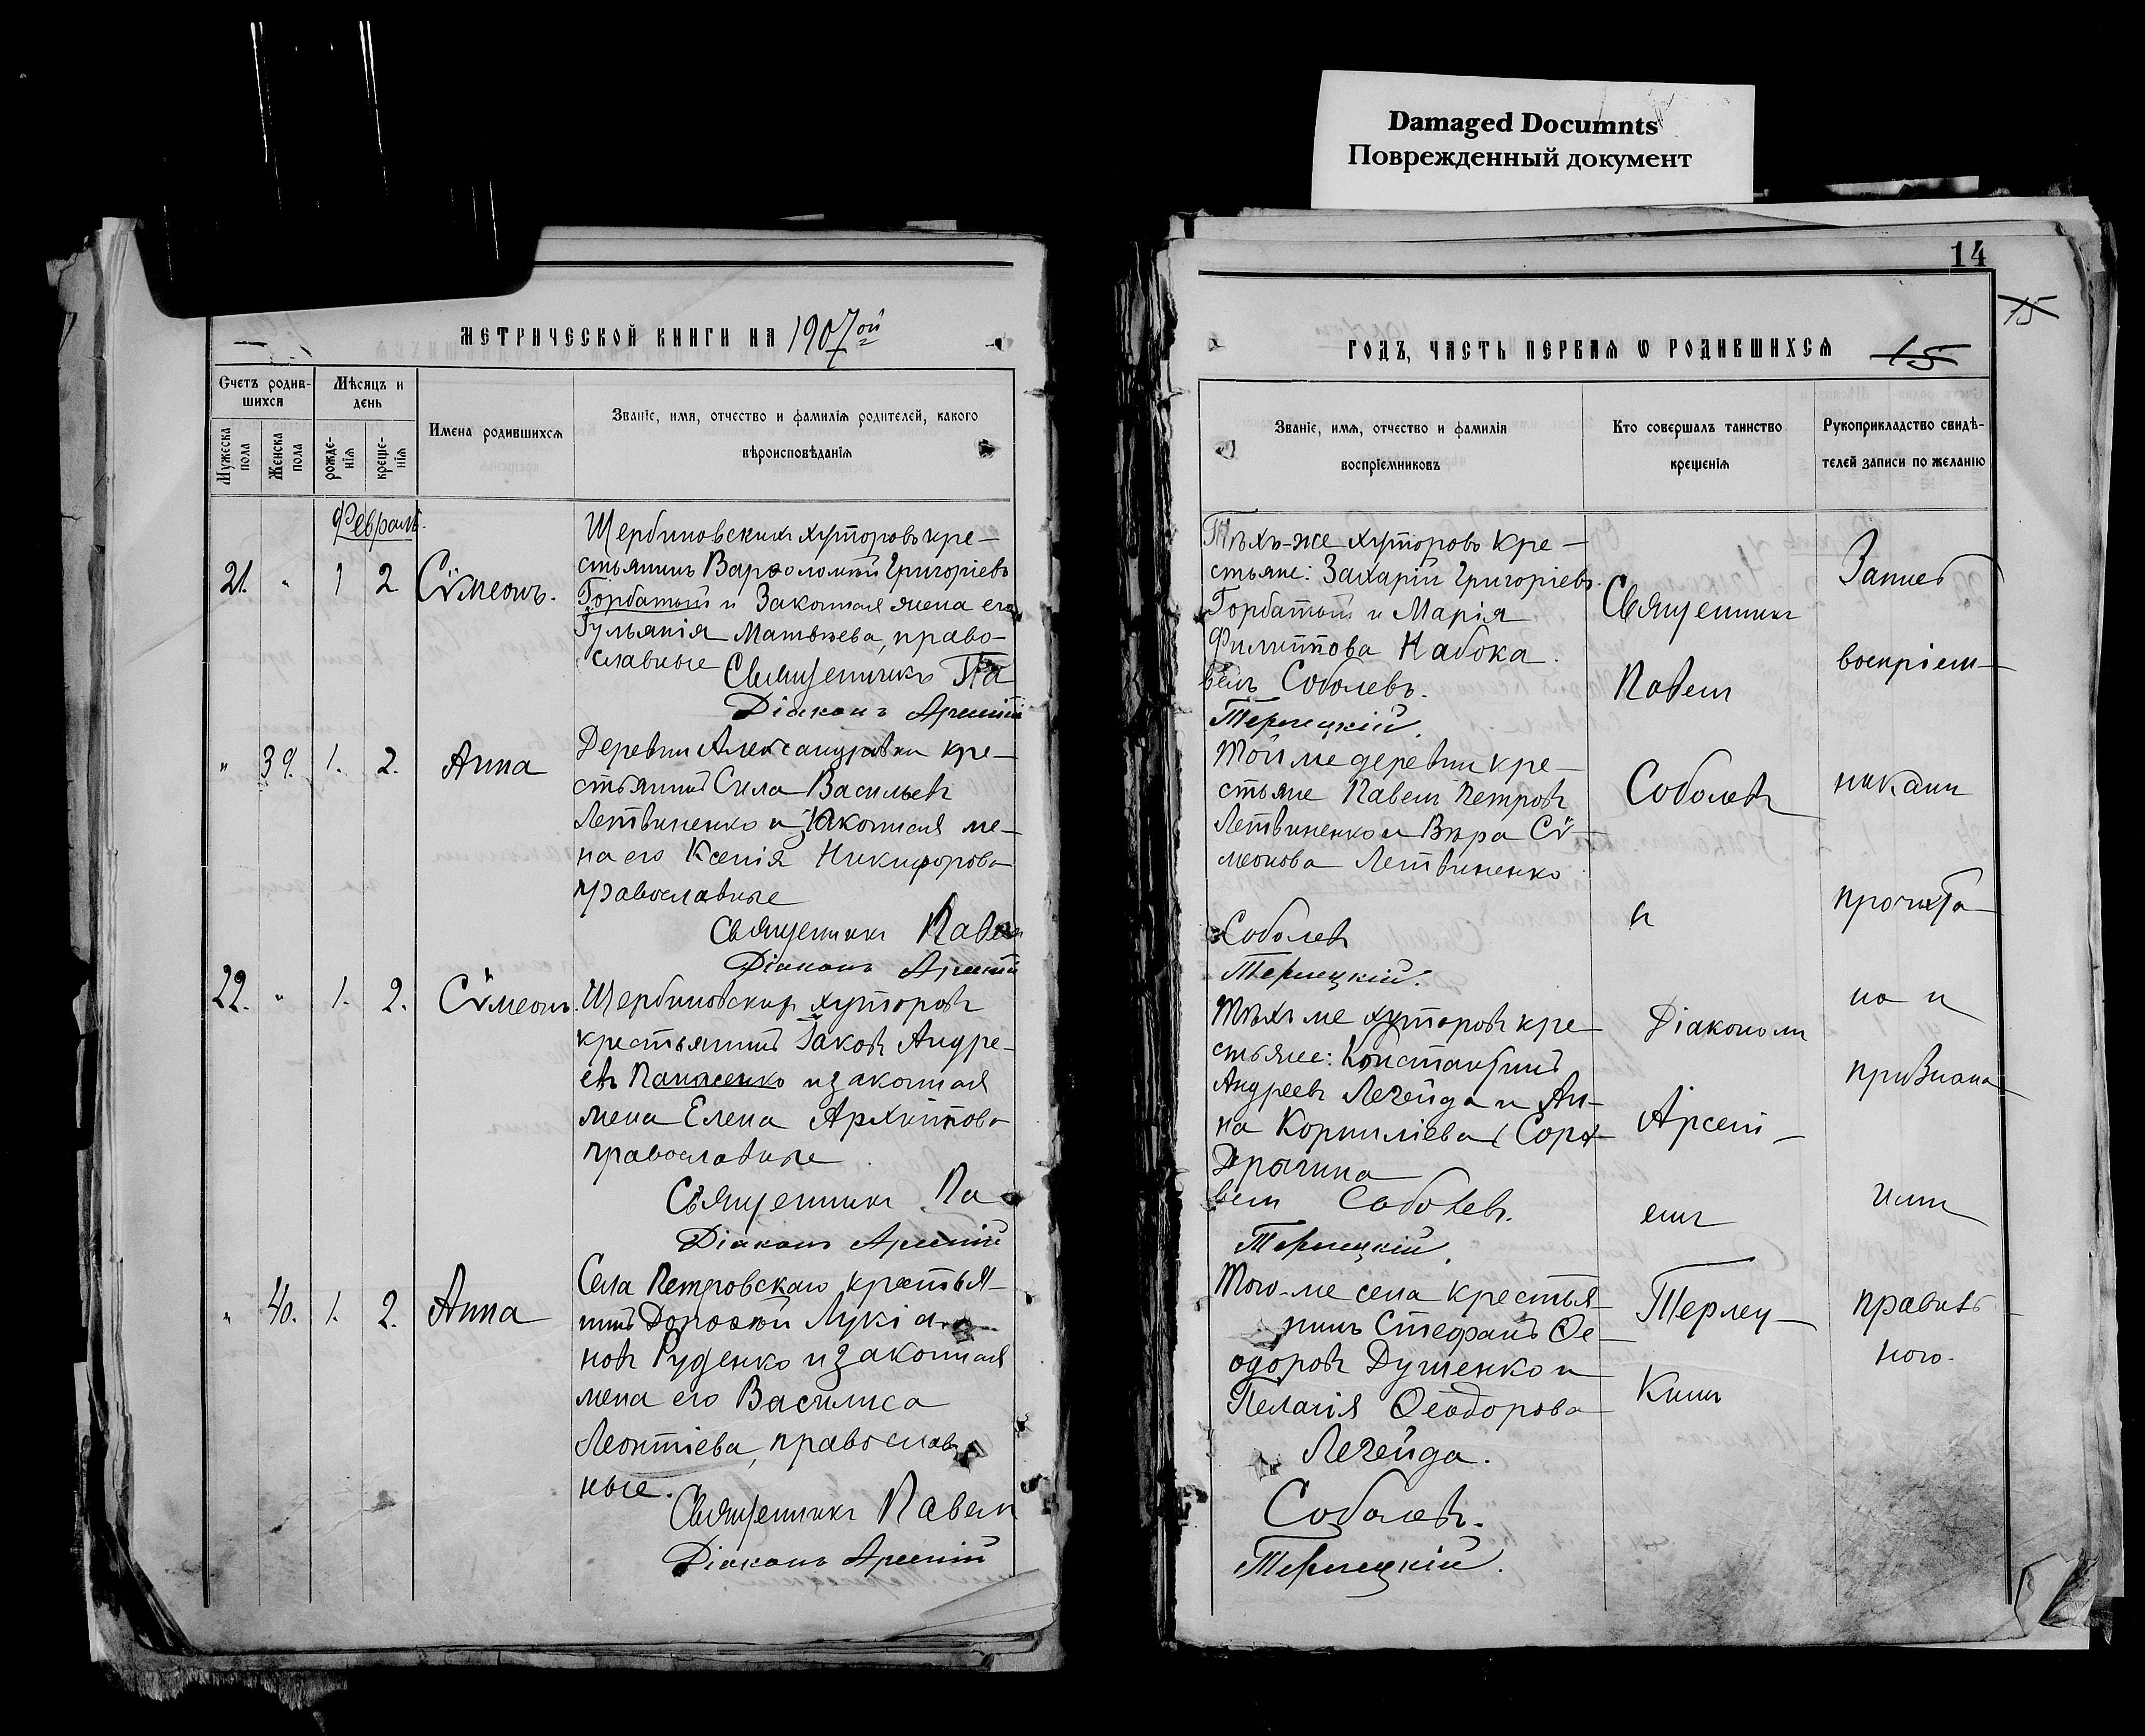 Damaged Documnts
Поврежденный документ
МЕТРИЧЕСКОЙ КНИГИ НА 1907ой
Счетъ родив-
шихся
Мѣсяцъ и
день
Мужеска
пола
Женска
пола
рожде-
нія
креще-
нія
Имена родившихся
Званіе, имя, отчество и фамилія родителей, какого
вѣроисповѣданія
Февраль.
21. " 1 2 Сѵмеонъ.
Щербиновскихъ хуторовъ кре-
стьянинъ Варѳоломей Григоріевъ
Горбатый и законная жена его
Іульянія Матвѣева, право-
славные
Священникъ Па
Діаконъ Арсеній
" 39. 1. 2. Анна
Деревни Александровки кре-
стьянинъ Сила Васильевъ
Летвиненко и законная же-
на его Ксенія Никифорова
православные
Священникъ Павелъ
Діаконъ Арсеній
22. " 1. 2. Сѵмеонъ.
Щербиновскихъ хуторовъ
крестьянинъ Іаковъ Андре-
евъ Панасенко и законная
жена Елена Архипова
православные
Священникъ Па
Діаконъ Арсеній
" 40. 1. 2. Анна
Села Петровскаго крестья-
нинъ Дороѳей Лукіа-
новъ Руденко и законная
жена его Василиса
Леонтіева, православ
ные.
Священникъ Павелъ
Діаконъ Арсеній
14
15
ГОДЪ, ЧАСТЬ ПЕРВАЯ Ѡ РОДИВШИХСЯ 15
Званіе, имя, отчество и фамилія
воспріемниковъ
Кто совершалъ таинство
крещенія
Рукоприкладство свидѣ-
телей записи по желанію
Тѣхъ-же хуторовъ кре-
стьяне: Захарій Григоріевъ
Горбатый и Марія
Филиппова Набока.
велъ Соболевъ.
Терлецкій.
Той же деревни кре-
стьяне Павелъ Петровъ
Летвиненко и Вѣра Сѵ-
меонова Летвиненко
Соболевъ
Терлецкій.
Тѣхъ же хуторовъ кре
стьяне: Константинъ
Андреевъ Легейда и Ан-
на Корниліева
велъ Соболевъ.
Терлецкій.
Того-же села крестья-
нинъ Стефанъ Ѳе-
одоровъ Душенко и
Пелагія Ѳеодорова
Легейда.
Соболевъ.
Терлецкій.
Священникъ
Павелъ
Соболевъ
и
Діакономъ
Арсені-
емъ
Терлец-
кимъ
Запись
воспріем-
никами
прочита-
на и
признана
ими
правиль-
ною.